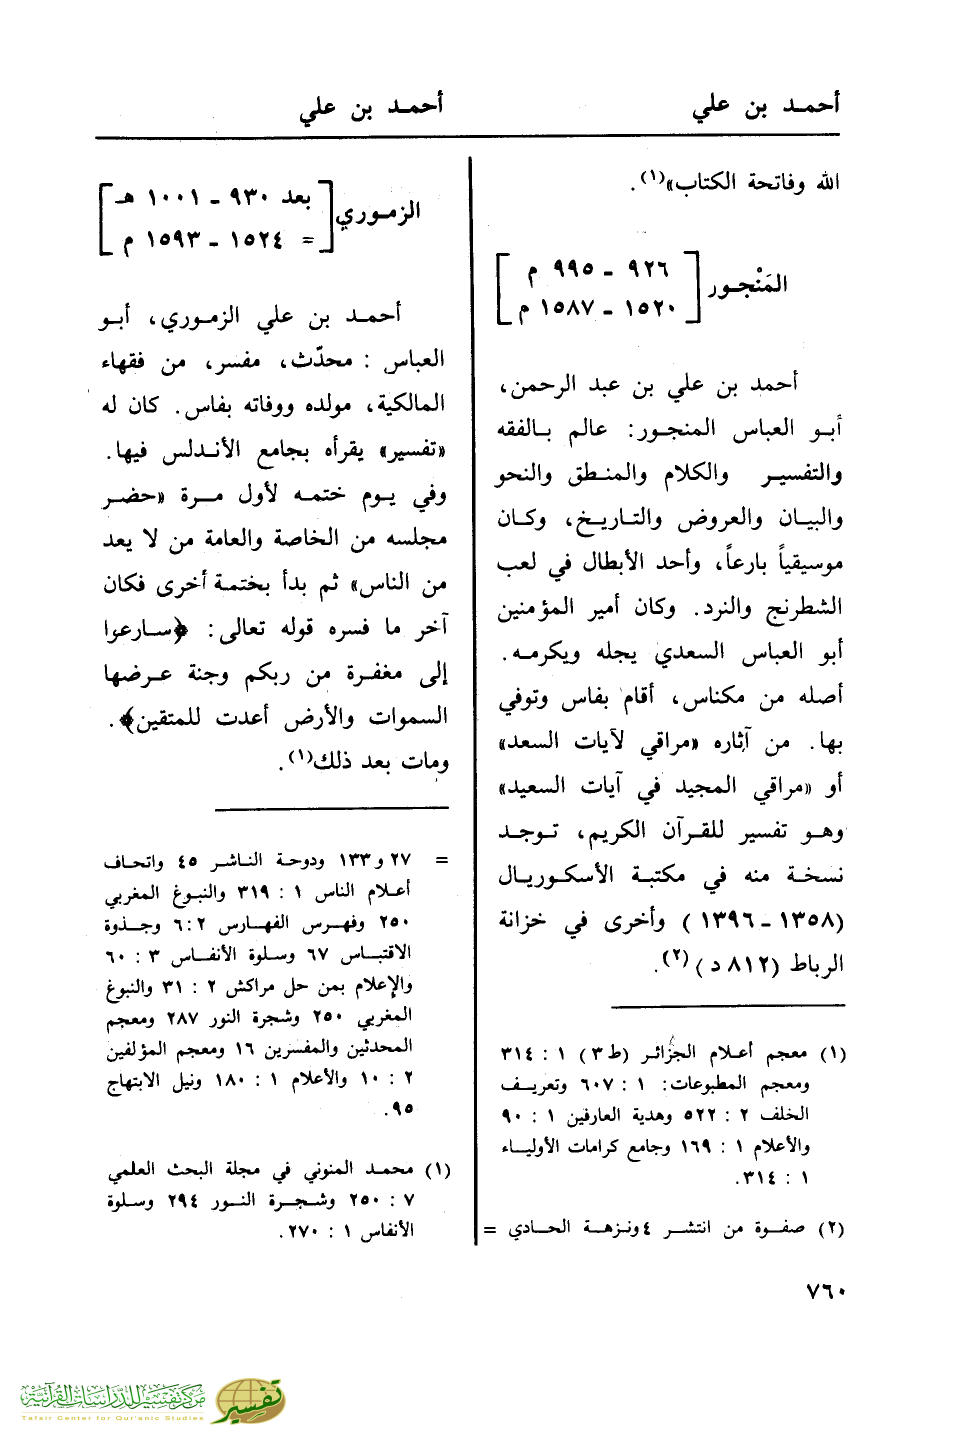 أحمد بن علي
أحمد بن علي
الله وفاتحة الكتاب»(١).
المَنْجور
[ ٩٢٦ - ٩٩٥ م
١٥٢٠ - ١٥٨٧ م ]
أحمد بن علي بن عبد الرحمن،
أبو العباس المنجور: عالم بالفقه
والتفسير والكلام والمنطق والنحو
والبيان والعروض والتاريخ، وكان
موسيقياً بارعاً، وأحد الأبطال في لعب
الشطرنج والنرد. وكان أمير المؤمنين
أبو العباس السعدي يجله ويكرمه.
أصله من مكناس، أقام بفاس وتوفي
بها. من آثاره «مراقي لآيات السعد»
أو «مراقي المجيد في آيات السعيد»
وهو تفسير للقرآن الكريم، توجد
نسخة منه في مكتبة الأسكوريال
(١٣٥٨ - ١٣٩٦) وأخرى في خزانة
الرباط (٨١٢ د)(٢).
(١) معجم أعلام الجزائر (ط ٣) ١ : ٣١٤
ومعجم المطبوعات: ١ : ٦٠٧ وتعريف
الخلف ٢ : ٥٢٢ وهدية العارفين ١ : ٩٠
والأعلام ١ : ١٦٩ وجامع كرامات الأولياء
١ : ٣١٤.
(٢) صفوة من انتشر ٤ ونزهة الحادي =
الزموري
[ بعد ٩٣٠ - ١٠٠١ هـ
= ١٥٢٤ - ١٥٩٣ م ]
أحمد بن علي الزموري، أبو
العباس : محدّث، مفسر، من فقهاء
المالكية، مولده ووفاته بفاس. كان له
«تفسير» يقرأه بجامع الأندلس فيها.
وفي يوم ختمه لأول مرة «حضر
مجلسه من الخاصة والعامة من لا يعد
من الناس» ثم بدأ بختمة أخرى فكان
آخر ما فسره قوله تعالى: ﴿سارعوا
إلى مغفرة من ربكم وجنة عرضها
السموات والأرض أعدت للمتقين﴾.
ومات بعد ذلك(١).
= ٢٧ و ١٣٣ ودوحة الناشر ٤٥ واتحاف
أعلام الناس ١ : ٣١٩ والنبوغ المغربي
٢٥٠ وفهرس الفهارس ٢ : ٦ وجذوة
الاقتباس ٦٧ وسلوة الأنفاس ٣ : ٦٠
والإعلام بمن حل مراكش ٢ : ٣١ والنبوغ
المغربي ٢٥٠ وشجرة النور ٢٨٧ ومعجم
المحدثين والمفسرين ١٦ ومعجم المؤلفين
٢ : ١٠ والأعلام ١ : ١٨٠ ونيل الابتهاج
٩٥.
(١) محمد المنوني في مجلة البحث العلمي
٧ : ٢٥٠ وشجرة النور ٢٩٤ وسلوة
الأنفاس ١ : ٢٧٠.
٧٦٠
مركز تفسير للدراسات القرآنية
Tafsir Center for Qur'anic Studies
تفسير